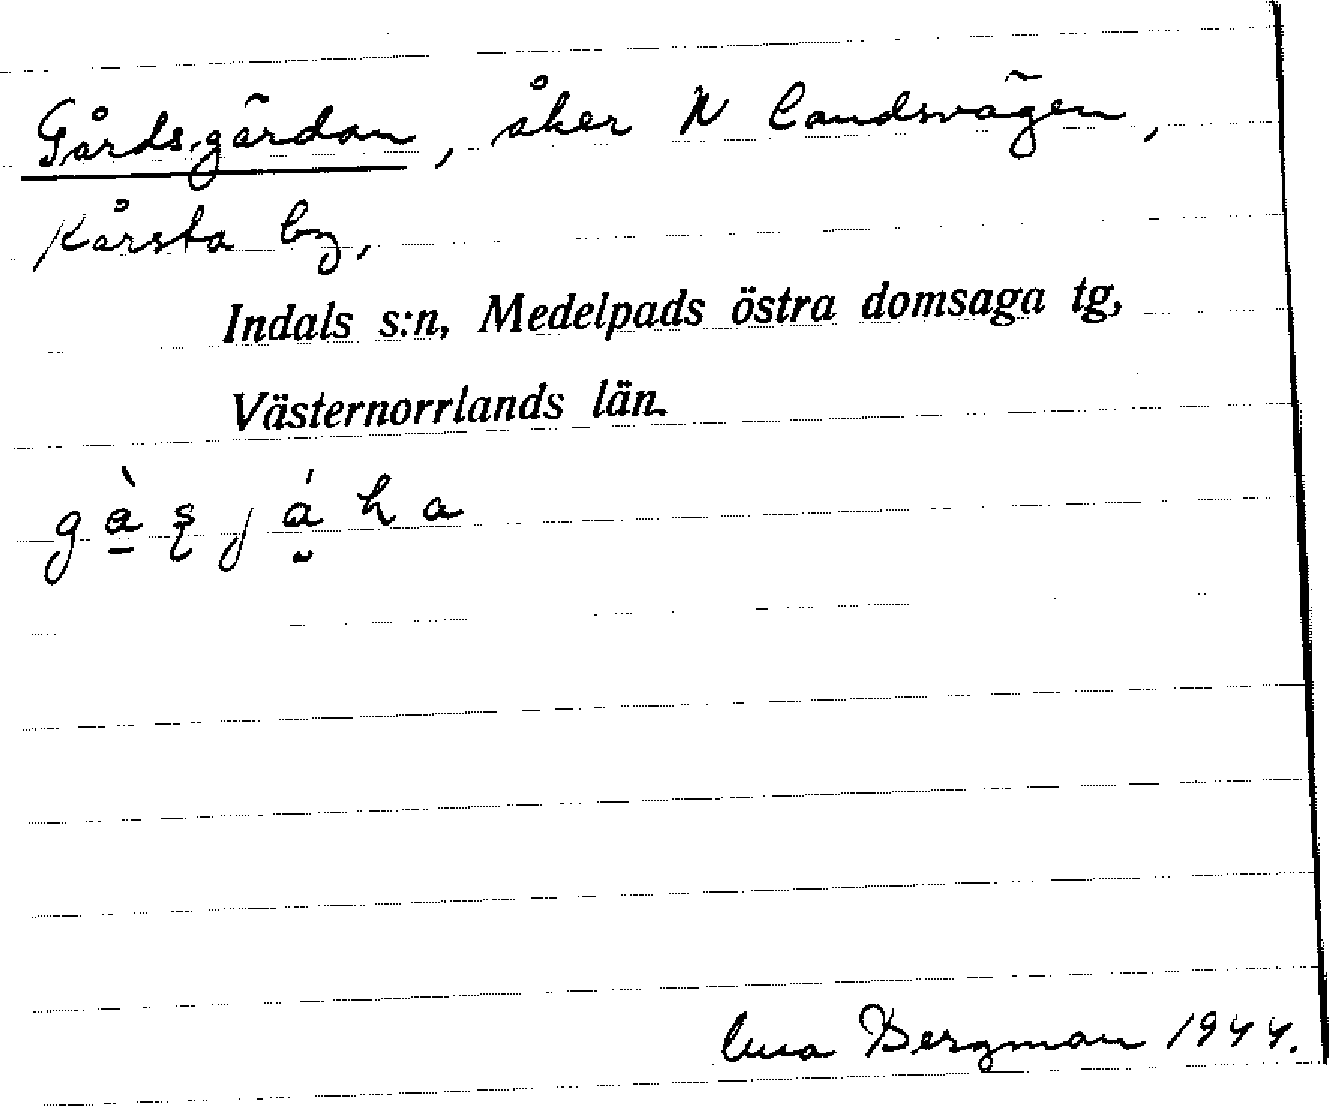 Gårdsgärdan, åker N landsvägen,
Kårsta by,
Indals s:n, Medelpads östra domsaga tg,
Västernorrlands län.
Bergman 1944.